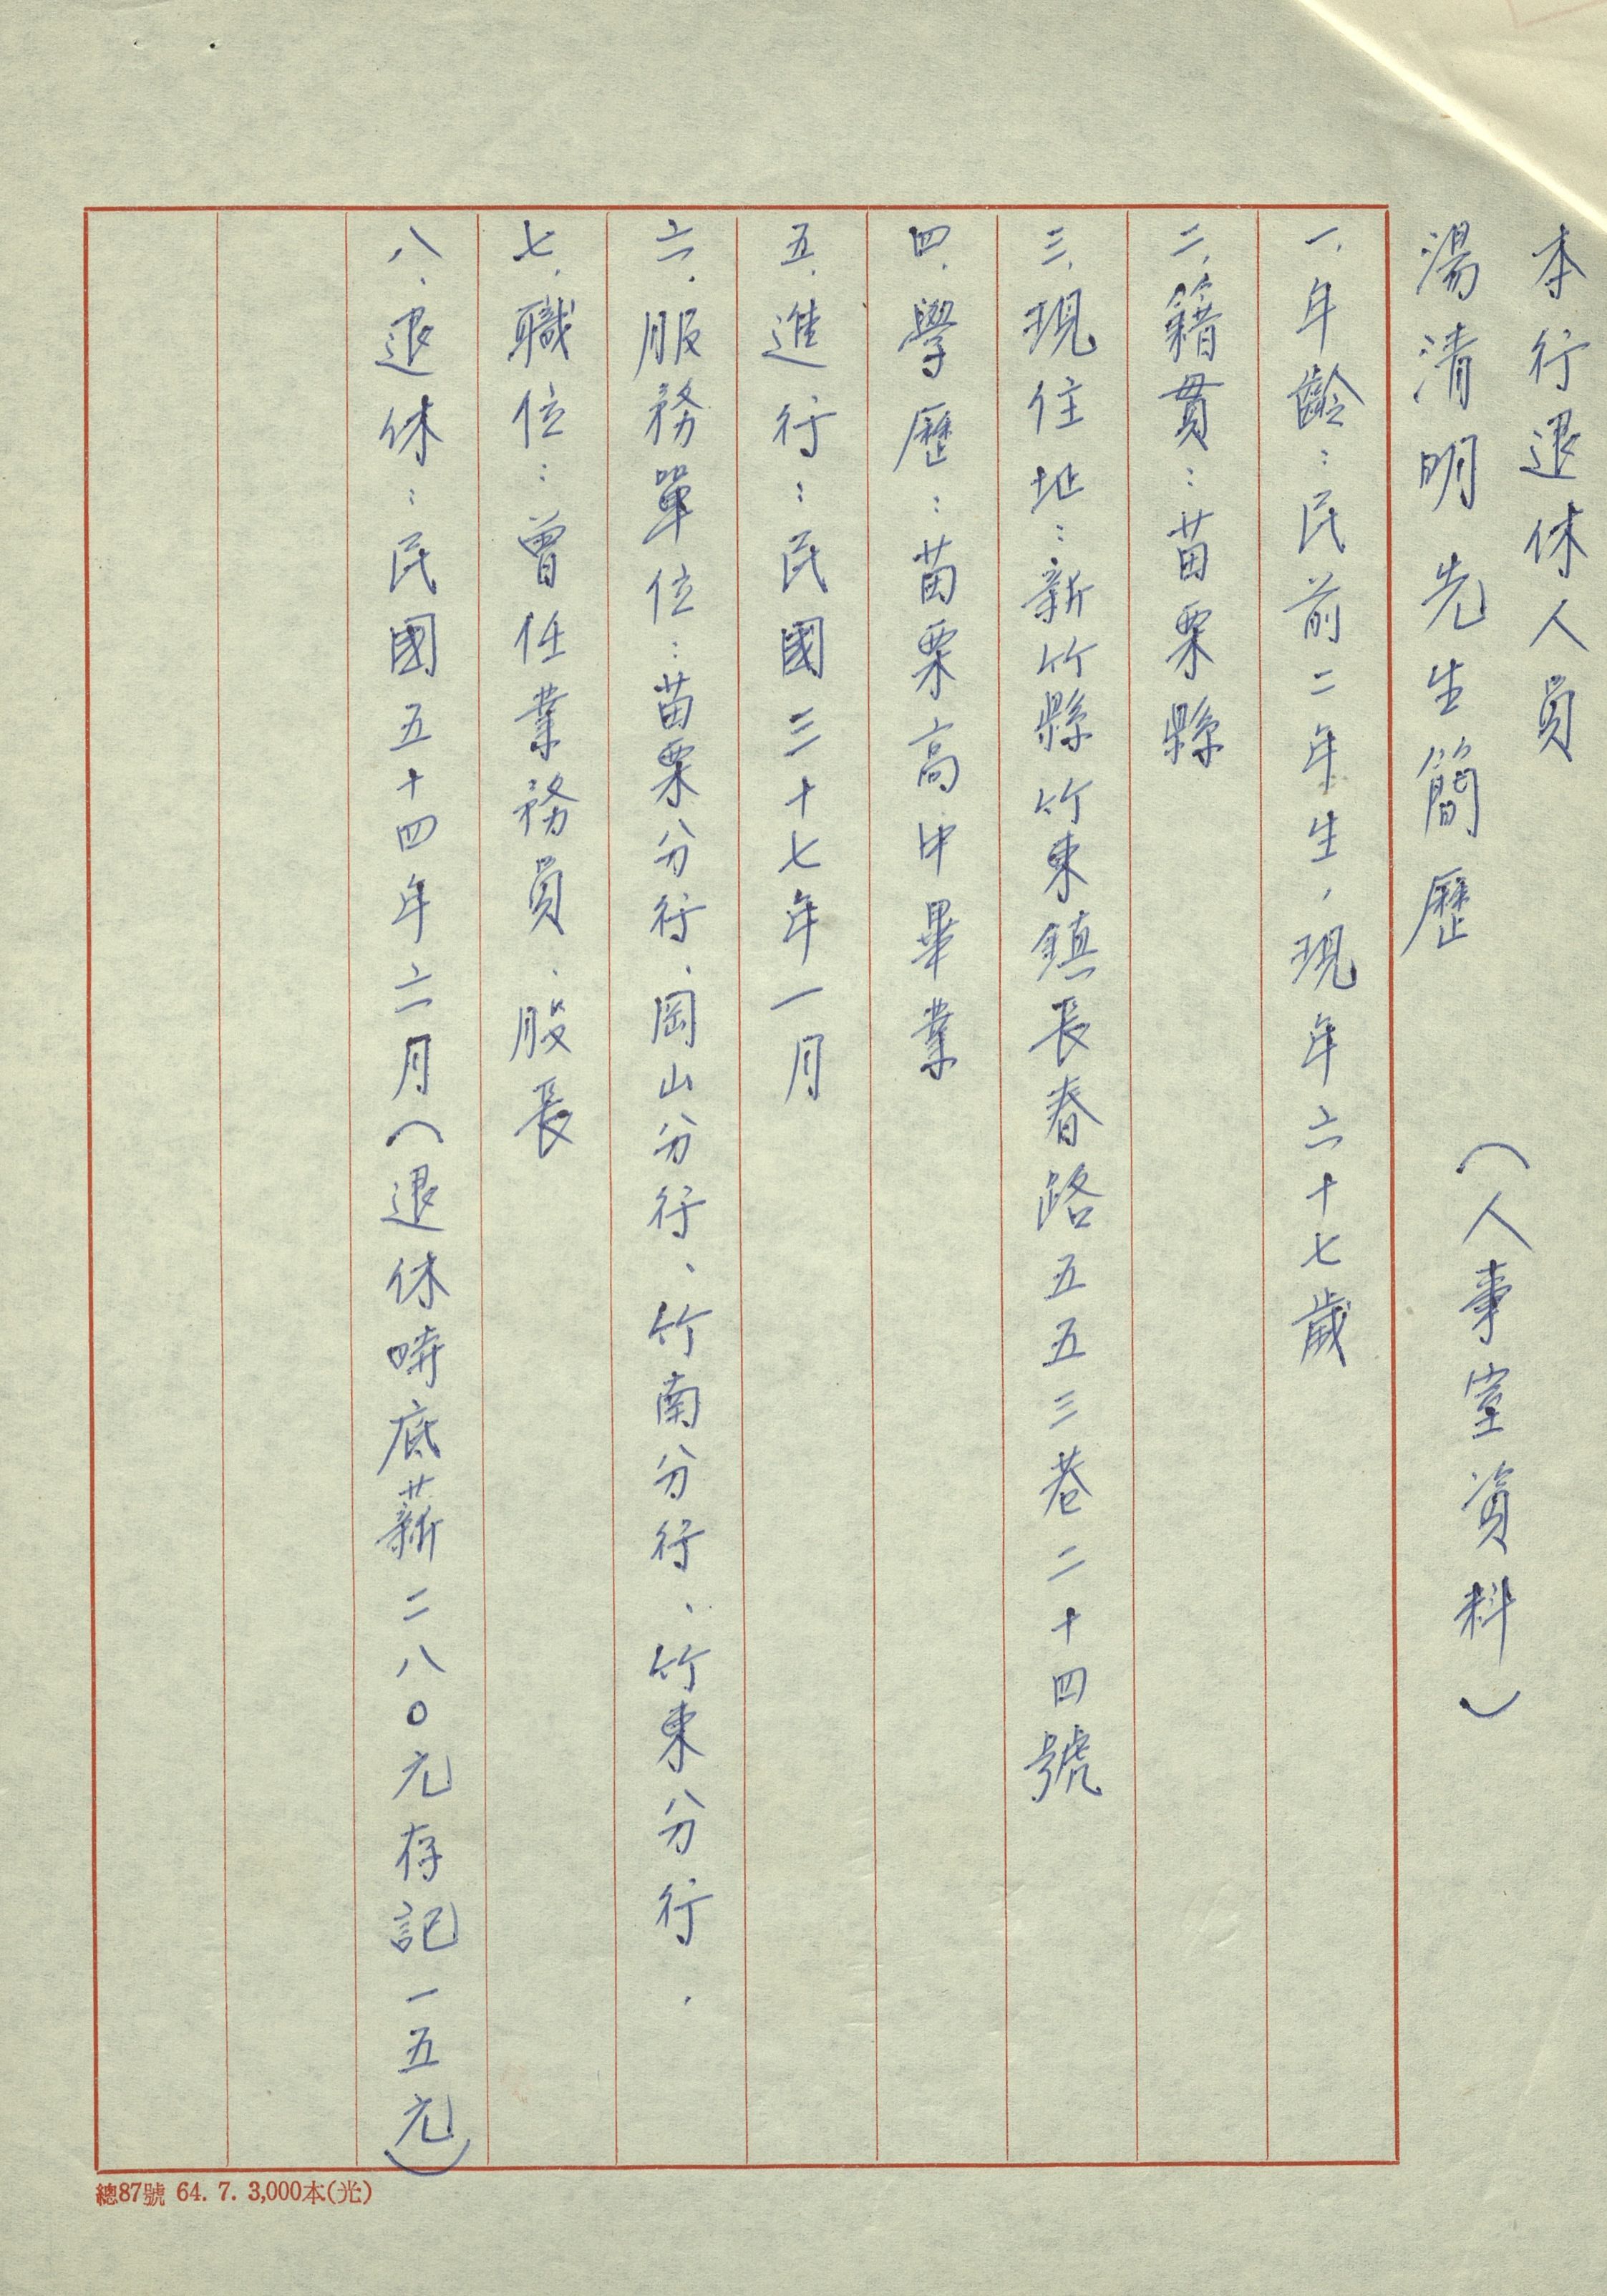 本行退休人員
湯清明先生簡歷
（人事室資料）
一、年齡：民前二年生，現年六十七歲
二、籍貫：苗栗縣
三、現住地：新竹縣竹東鎮長春路五五三巷二十四號
四、學歷：苗栗高中畢業
五、進行：民國三十七年一月
六、服務單位：苗栗分行、岡山分行、竹南分行、竹東分行．
七、職位：曾任業務員、股長
八、退休：民國五十四年六月（退休時底薪二八〇元存記一五元）
總87號 64. 7. 3,000本(光)